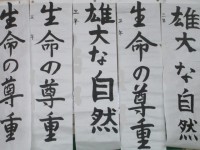 雄大な自然
生命の尊重
雄大な自然
生命の尊重
生命の尊重